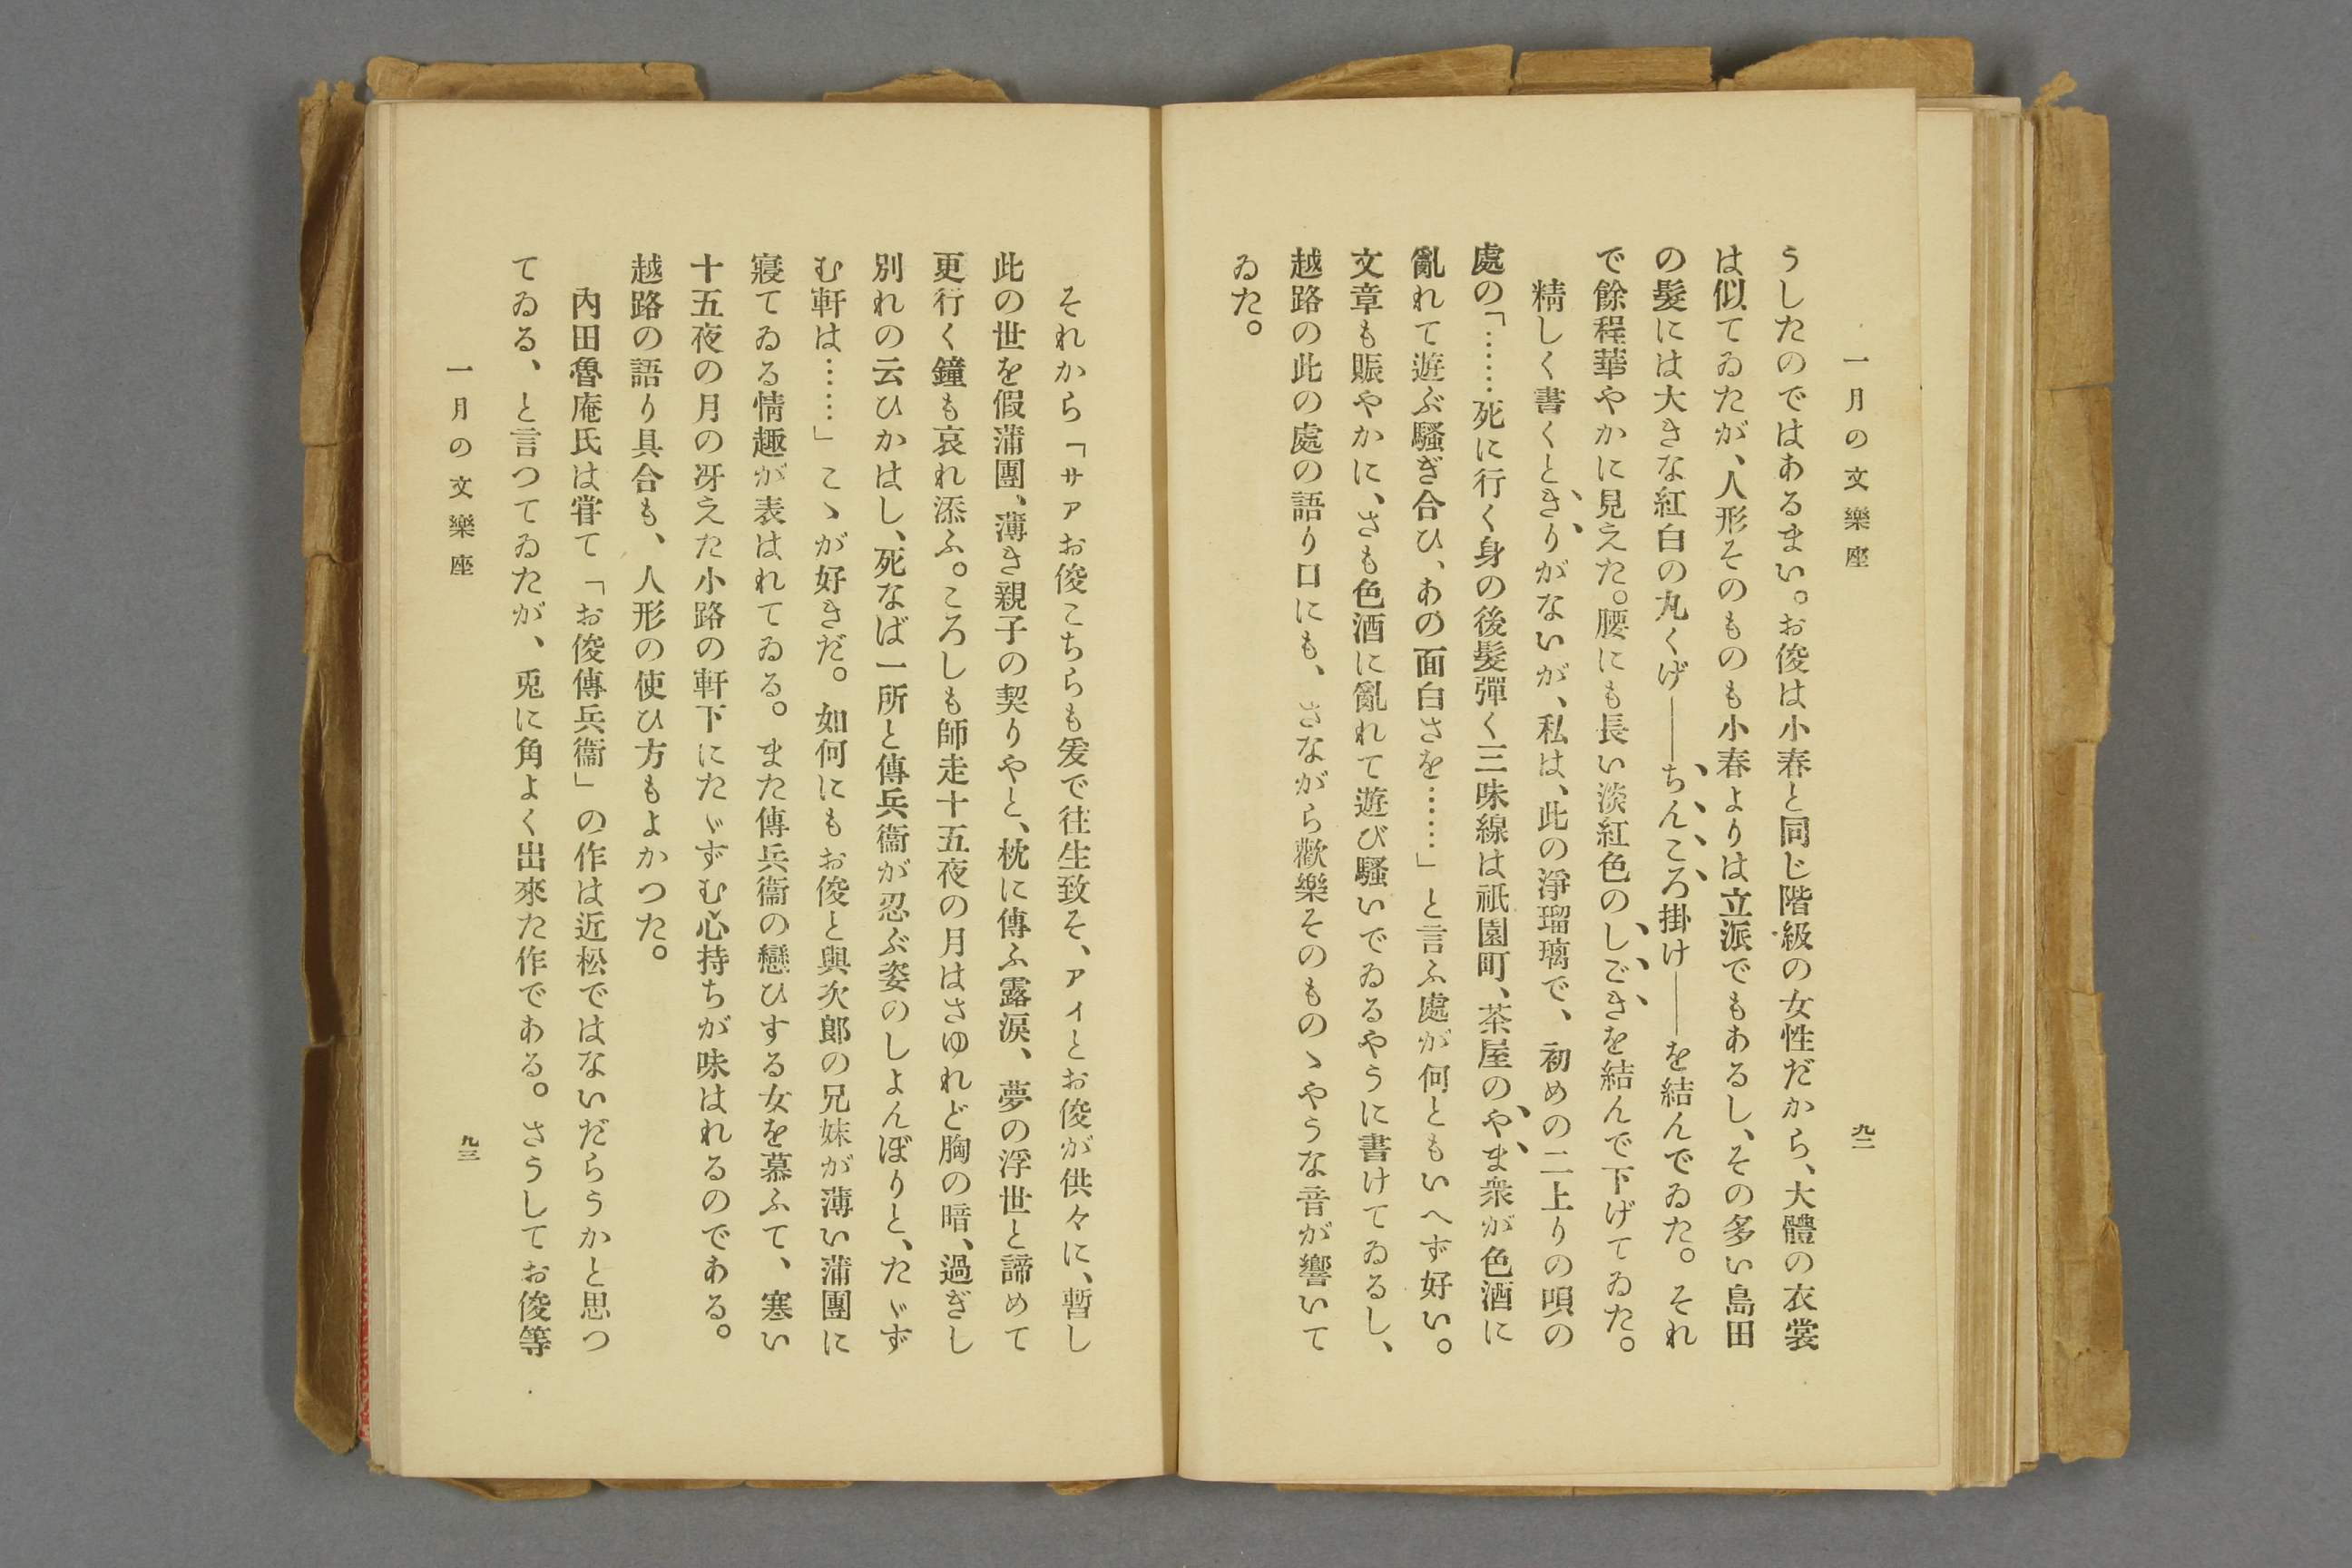 一月の文樂座
九二
うしたのではあるまい。お俊は小春と同じ階級の女性だから、大體の衣裳
は似てゐたが、人形そのものも小春よりは立派でもあるし、その多い島田
の髮には大きな紅白の丸くげ――ちんころ掛け――を結んでゐた。それ
で餘程華やかに見えた。腰にも長い淡紅色のしごきを結んで下げてゐた。
精しく書くときりがないが、私は、此の淨瑠璃で、初めの二上りの唄の
處の「……死に行く身の後髮彈く三味線は祇園町、茶屋のやま衆が色酒に
亂れて遊ぶ騷ぎ合ひ、あの面白さを……」と言ふ處が何ともいへず好い。
文章も賑やかに、さも色酒に亂れて遊び騷いでゐるやうに書けてゐるし、
越路の此の處の語り口にも、さながら歡樂そのものゝやうな音が響いて
ゐた。
それから「サアお俊こちらも爰で往生致そ、アイとお俊が供々に、暫し
此の世を假蒲團、薄き親子の契りやと、枕に傳ふ露涙、夢の浮世と諦めて
更行く鐘も哀れ添ふ。ころしも師走十五夜の月はさゆれど胸の暗、過ぎし
別れの云ひかはし、死なば一所と傳兵衞が忍ぶ姿のしよんぼりと、たゞず
む軒は……」こゝが好きだ。如何にもお俊と與次郎の兄妹が薄い蒲團に
寢てゐる情趣が表はれてゐる。また傳兵衞の戀ひする女を慕ふて、寒い
十五夜の月の冴えた小路の軒下にたゞずむ心持ちが味はれるのである。
越路の語り具合も、人形の使ひ方もよかつた。
內田魯庵氏は甞て「お俊傳兵衞」の作は近松ではないだらうかと思つ
てゐる、と言つてゐたが、兎に角よく出來た作である。さうしてお俊等
一月の文樂座
九三